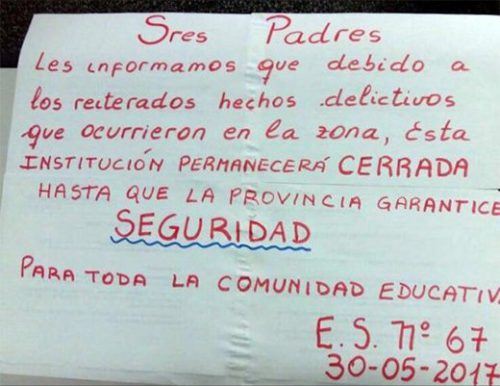 Sres Padres
Les informamos que debido a
los reiterados hechos delictivos
que ocurrieron en la zona, ésta
INSTITUCIÓN PERMANECERÁ CERRADA
HASTA QUE LA PROVINCIA GARANTICE
SEGURIDAD
PARA TODA LA COMUNIDAD EDUCATIVA
E.S. Nº 67
30-05-2017